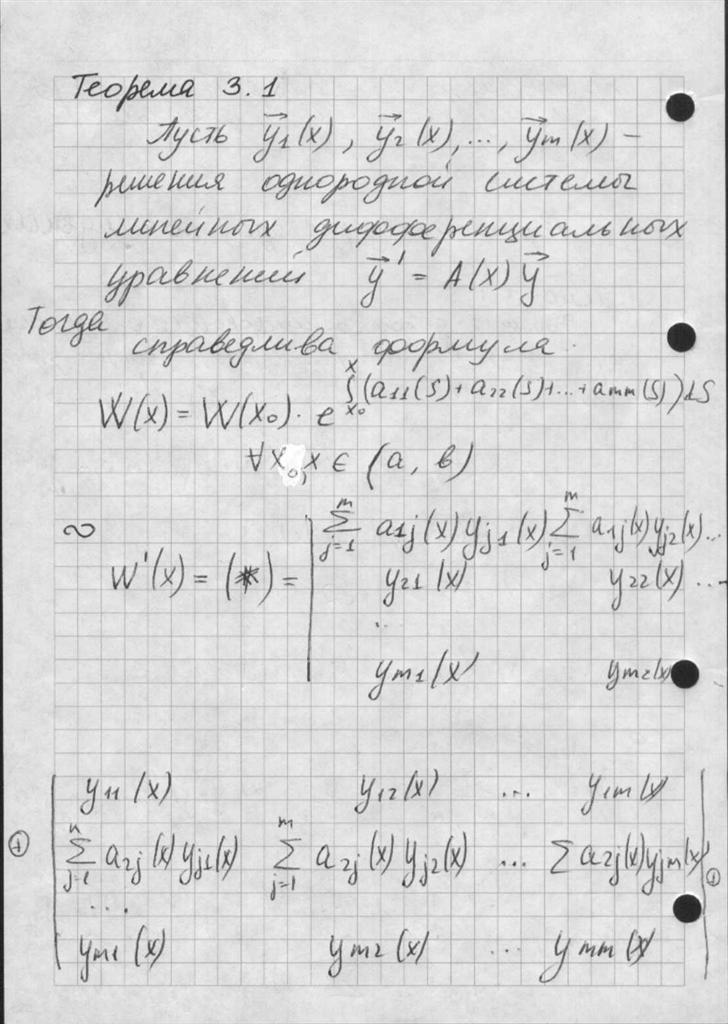 Теорема 3.1
Пусть y⃗1(x), y⃗2(x), ..., y⃗m(x) –
решения однородной системы
линейных дифференциальных
уравнений y⃗' = A(x) y⃗
Тогда справедлива формула.
W(x) = W(x₀) · e^{∫_{x₀}^{x} (a11(s) + a22(s) + ... + amm(s)) ds}
∀ x₀, x ∈ (a, в)
∾
W'(x) = (*) = | ∑_{j=1}^{m} a1j(x) yj1(x) ∑_{j=1}^{m} a1j(x) yj2(x) ...
y21(x) y22(x) ...
..
ym1(x) ym2(x)
| y11(x) y12(x) ... y1m(x) |
+ ∑_{j=1}^{n} a2j(x) yj1(x) ∑_{j=1}^{m} a2j(x) yj2(x) ... ∑ a2j(x) yjm(x) +
....
ym1(x) ym2(x) ... ymm(x)